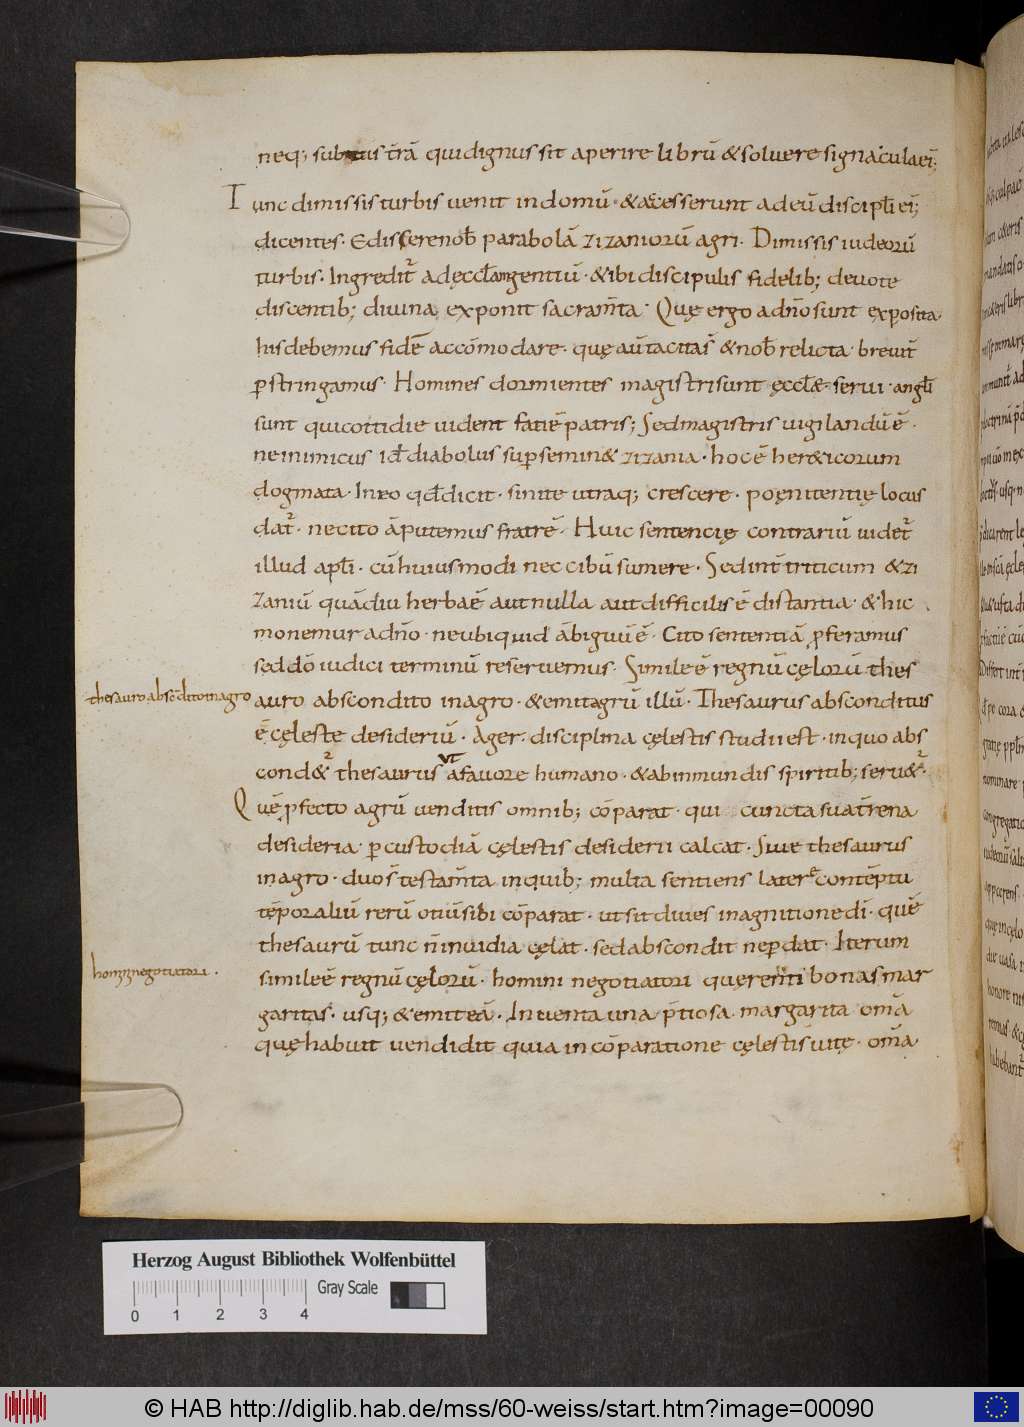 neq; subtus t̄rā qui dignus sit aperire librū & soluere signacula ei;
Tunc dimissis turbis uenit in domū · & accesserunt ad eū discipl̄i ei;
dicentes · Edissere nob̄ parabolā zizaniorū agri · Dimissis iudeorū
turbis · Ingredit᷑ ad ęccl̄am gentiū · & ibi discipulis fidelib; deuote
discentib; diuina exponit sacram̄ta · Quę ergo a dn̄o sunt exposita
his debemus fidē accōmodare · quę aut̄ tacita s̄ & nob̄ relicta breuit̄
ꝑstringamus · Homines dormientes magistri sunt ęccl̄ę · serui · angl̄i
sunt qui cottidie uident faciē patris; Sed magistris uigilandū ē ·
ne inimicus id ē diabolus suꝑsemin& zizania · hoc ē her&icorum
dogmata · In eo qd̄ dicit · sinite utraq; crescere · poęnitentię locus
dat᷑ · ne cito āputemus fratrē · Huic sentencię contrariū uidet᷑
illud apl̄i · cū huiusmodi nec cibū sumere · Sed int̄ triticum & zi
zaniū quādiu herba ē aut nulla aut difficilis ē distantia · & hic
monemur a dn̄o · ne ubi quid ābiguū ē · Cito sententiā ꝓferamus
sed dō iudici terminū reseruemus · Simile ē regnū cęlorū thes
thesauro absc̄dito in agro
auro abscondito in agro · & emit agrū illū · Thesaurus absconditus
ē cęleste desideriū · Ager · disciplina cęlestis studii est · in quo abs
cond&᷑ thesaurus ut a fauore humano · & ab inmundis spiritib; seru&᷑ ·
Quē ꝓfecto agrū uenditis omnib; cōparat · qui cuncta sua t̄rena
desideria · ꝑ custodiā cęlestis desiderii calcat · Siue thesaurus
in agro · duo s̄ testam̄ta in quib; multa sentiens latere contēptu
tēporaliū rerū otiū sibi cōparat · ut sit diues in agnitione dī · quē
thesaurū tunc n̄ inuidia cęlat · sed abscondit ne ꝑdat · Iterum
homīni negotiatori ·
simile ē regnū cęlorū · homini negotiatori querenti bonas mar
garitas · usq; & emit eā · Inuenta una p̄tiosa margarita om̄a
quę habuit uendidit quia in cōparatione cęlestis uitę · om̄a
Herzog August Bibliothek Wolfenbüttel
Gray Scale
0 1 2 3 4
© HAB http://diglib.hab.de/mss/60-weiss/start.htm?image=00090